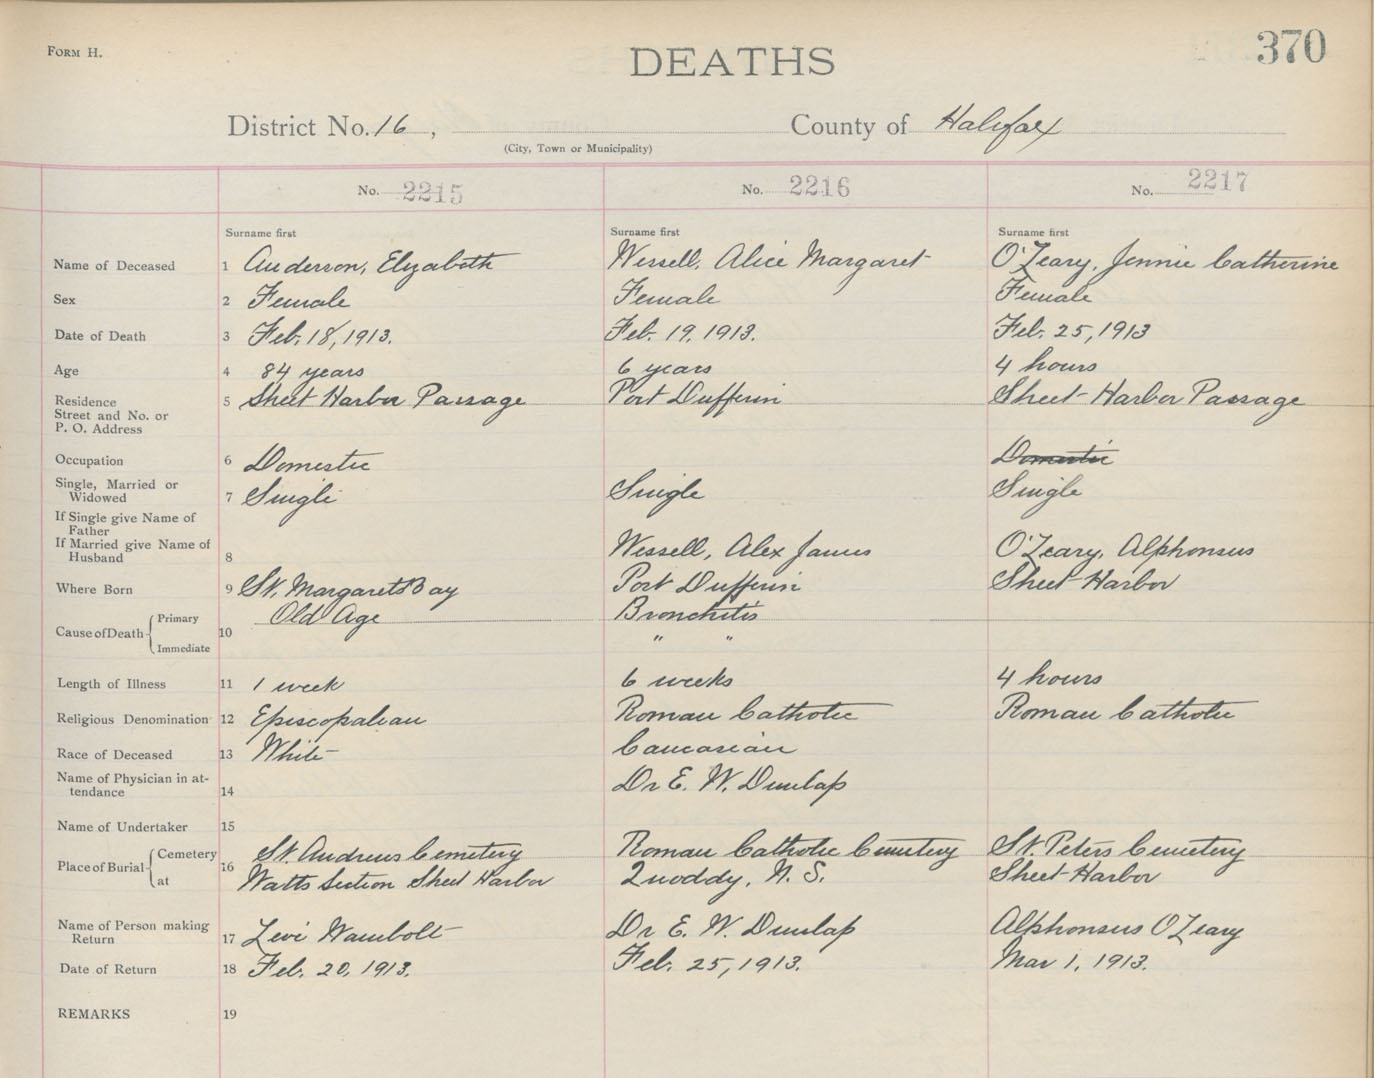 FORM H.
DEATHS
370
District No. 16, County of Halifax
(City, Town or Municipality)
No. 2215 No. 2216 No. 2217
Surname first Surname first Surname first
Name of Deceased 1 Anderson, Elizabeth Wessell, Alice Margaret O'Leary, Jennie Catherine
Sex 2 Female Female Female
Date of Death 3 Feb. 18, 1913. Feb. 19, 1913. Feb. 25, 1913
Age 4 84 years 6 years 4 hours
Residence Street and No. or P. O. Address 5 Sheet Harbor Passage Port Dufferin Sheet Harbor Passage
Occupation 6 Domestic Domestic
Single, Married or Widowed 7 Single Single Single
If Single give Name of Father
If Married give Name of Husband 8 Wessell, Alex James O'Leary, Alphonsus
Where Born 9 St. Margarets Bay Port Dufferin Sheet Harbor
Cause of Death Primary 10 Old Age Bronchitis
Immediate " "
Length of Illness 11 1 week 6 weeks 4 hours
Religious Denomination 12 Episcopalian Roman Catholic Roman Catholic
Race of Deceased 13 White Caucasian
Name of Physician in attendance 14 Dr E. W. Dunlap
Name of Undertaker 15
Place of Burial Cemetery 16 St. Andrews Cemetery Roman Catholic Cemetery St. Peters Cemetery
at Watts Section Sheet Harbor Quoddy, N. S. Sheet Harbor
Name of Person making Return 17 Levi Wambolt Dr E. W. Dunlap Alphonsus O'Leary
Date of Return 18 Feb. 20, 1913. Feb. 25, 1913. Mar 1, 1913.
REMARKS 19